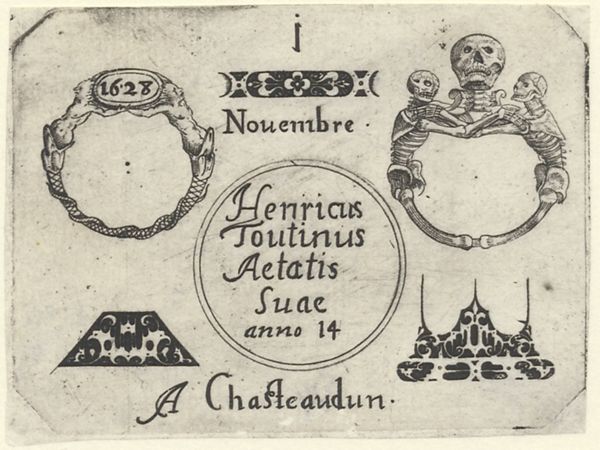 j
1628
Nouembre ·
Henricus
Toutinus
Aetatis
Suae
anno 14
A Chasteaudun ·